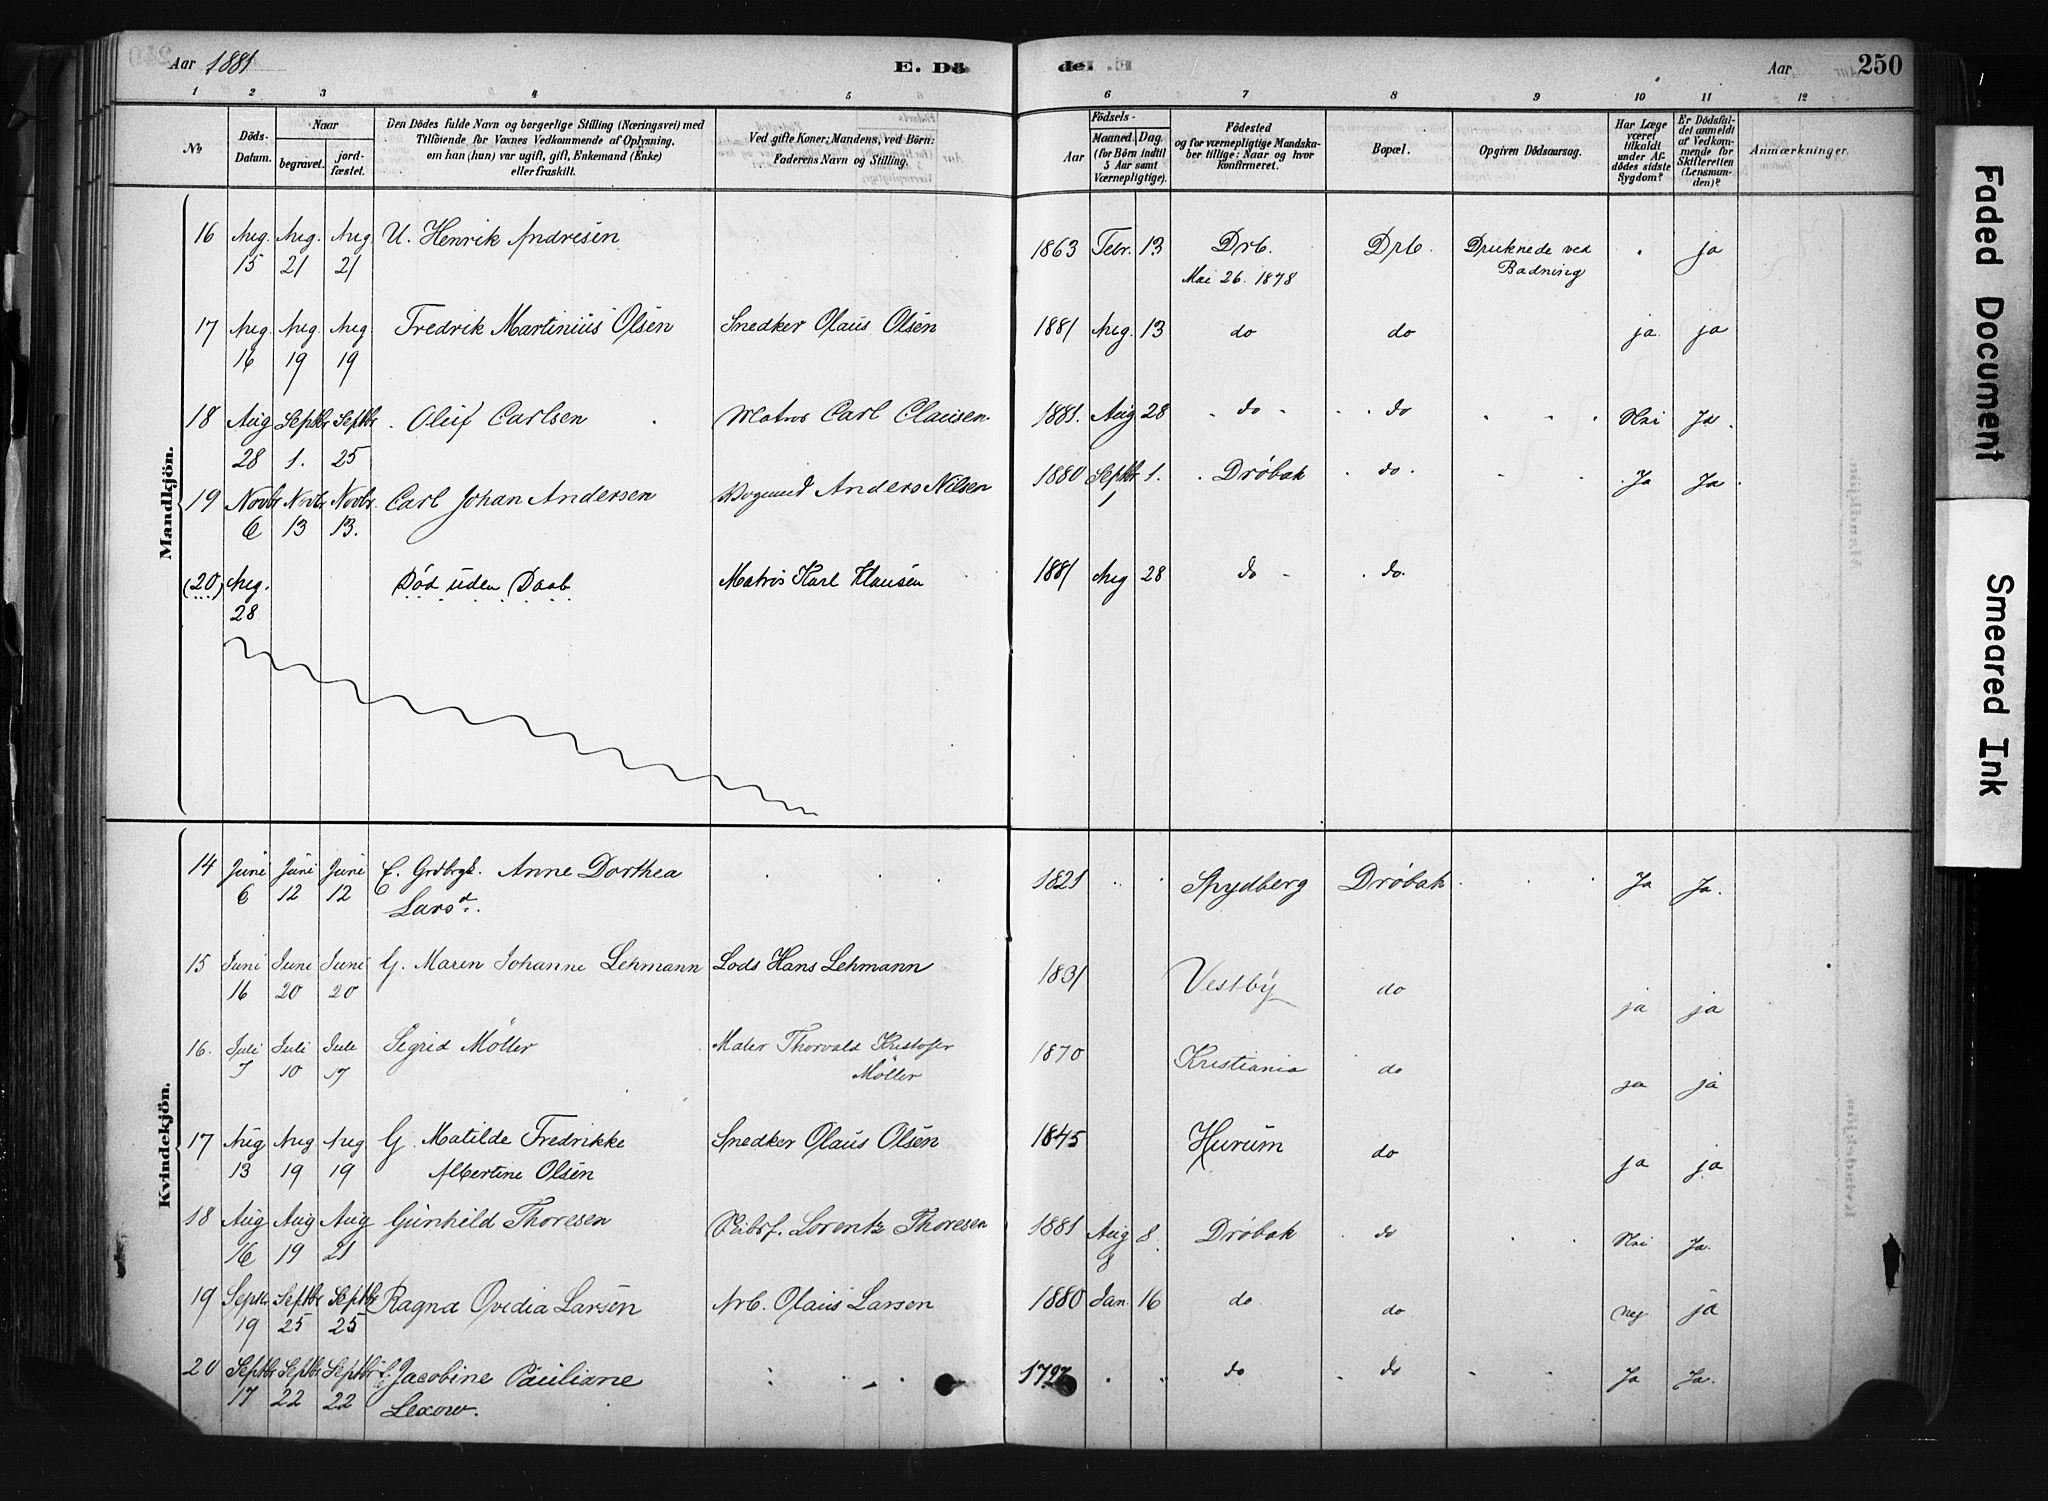 Aar 1881
E. Dö
de.
Aar
250
1 2 3 4 5 6 7 8 9 10 11 12
№
Döds-Datum.
Naar
begravet.
jord-fæstet.
Den Dödes fulde Navn og borgerlige Stilling (Næringsvei) med
Tilföiende for Voxnes Vedkommende af Oplysning,
om han (hun) var ugift, gift, Enkemand (Enke)
eller fraskilt.
Ved gifte Koner; Mandens, ved Börn:
Faderens Navn og Stilling.
Födsels-
Aar
Maaned. Dag.
(for Börn indtil
5 Aar samt
Værnepligtige).
Födested
og for værnepligtige Mandska-
ber tillige: Naar og hvor
konfirmeret.
Bopæl.
Opgiven Dödsaarsag.
Har Læge
været
tilkaldt
under Af-
dödes sidste
Sygdom?
Er Dödsfal-
det anmeldt
af Vedkom-
mende for
Skifteretten
(Lensman-
den)?
Anmærkninger.
Mandkjön.
16 Aug. Aug. Aug. U. Henrik Andresen 1863 Febr. 13 Drb. Drb. Druknede ved ja
15 21 21 Mai 26. 1878 Badning
17 Aug. Aug. Aug Fredrik Martinius Olsen Snedker Olaus Olsen 1881 Aug. 13 do do ja ja
16 19 19
18 Aug Septbr Septbr. Oluf Carlsen Matros Carl Clausen 1881. Aug 28 do do Nei Ja.
28 1. 25
19 Novbr Novbr Novbr. Carl Johan Andersen Anders Nilsen 1880 Septbr 1. Drøbak do. Ja Ja
6 13 13. 1
(20) Aug. Død uden Daab Matros Karl Klausen 1881 Aug 28 do do.
28
Kvindekjön.
14 Juni Juni Juni E. Anne Dorthea 1821 Spydberg Drøbak Ja Ja.
6 12 12 Larsd.
15 Juni Juni Juni G. Maren Johanne Lehmann Lods Hans Lehmann 1831 Vestby do ja ja
16 20 20
16. Juli Juli Juli Sigrid Möller Maler Thorvald Kristofer 1870 Kristiania do ja ja
7 10 17 Möller
17 Aug Aug Aug G. Matilde Fredrikke Snedker Olaus Olsen 1845 Hurum do ja ja
13 19 19 Albertine Olsen
18 Aug Aug Aug Gunhild Thoresen Lorentz Thoresen 1881 Aug 8. Drøbak do Nei Ja.
16 19 21 8
19 Septbr Septbr Septbr Ragna Ovidia Larsen Arb. Olaus Larsen 1880 Jan. 16 do do nej ja
19 25 25
20 Septbr Septbr Septbr E. Jacobine Pauliane 1797 do do Ja Ja.
17 22 22 Lexow.
Faded Document
Smeared Ink